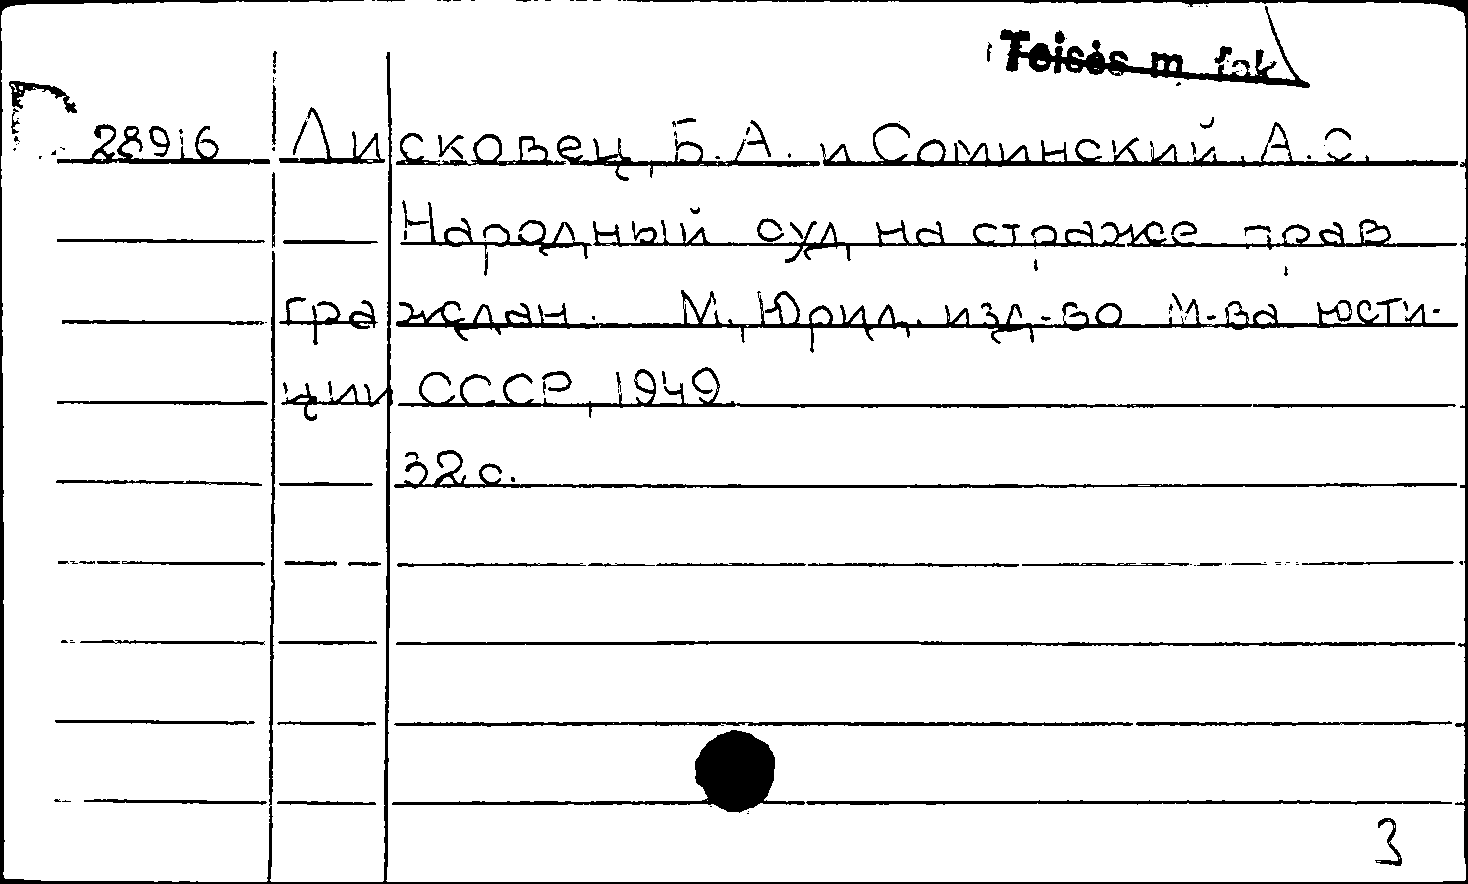 Teisės m. fak
28916 Лисковец, Б.А. и Соминский, А.С.
Народный суд на страже прав
граждан. М., Юрид. изд-во М-ва юсти-
ции СССР, 1949.
32 с.
3